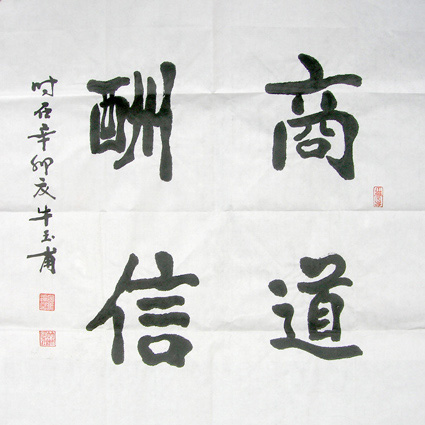 商道
酬信
时在辛卯夏牛玉甫